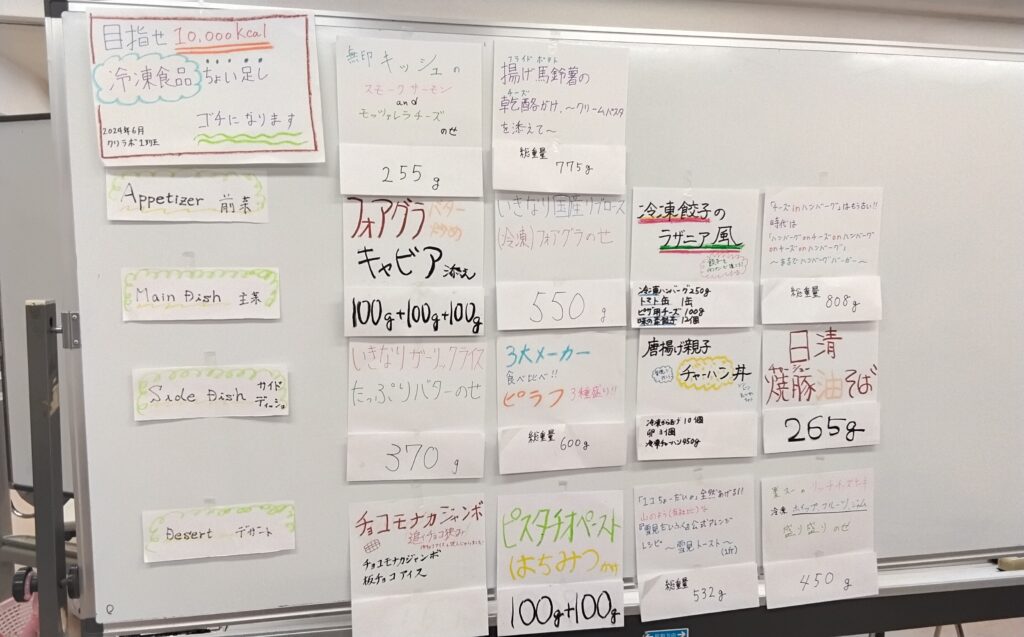 目指せ 10,000kcal
冷凍食品 ちょい足し
ゴチになります
2024年6月
クリラボ1班
Appetizer 前菜
無印 キッシュの
スモークサーモン
and
モッツァレラチーズ
のせ
255 g
フライドポテト
揚げ馬鈴薯の
チーズ
乾酪がけ、〜クリームパスタ
を添えて〜
総重量
775g
Main Dish 主菜
フォアグラ バター
炒め
キャビア 添え
100g+100g+100g
いきなり国産リブロース
(冷凍)フォアグラのせ
550 g
冷凍餃子の
ラザニア風
冷凍ハンバーグ250g
トマト缶 1缶
ピザ用チーズ 100g
味の素餃子 12個
「チーズinハンバーグ」はもう古い!!
時代は
「ハンバーグonチーズonハンバーグ
onチーズonハンバーグ」
〜まるでハンバーグバーガー〜
総重量 808g
Side Dish サイド
ディッシュ
いきなりガーリックライス
たっぷりバターのせ
370 g
3大メーカー
食べ比べ!!
ピラフ 3種盛り!!
総重量 600g
唐揚げ親子
チャーハン丼
冷凍からあげ 10個
卵 3個
冷凍チャーハン450g
日清
焼豚油そば
265g
Desert デザート
チョコモナカジャンボ
追いチョコ挟み
チョコモナカジャンボ
板チョコアイス
ピスタチオペースト
はちみつ がけ
100g+100g
「1コちょーだいの」全然あげる!!
山のよう(当社比)で
『雪見だいふく』公式アレンジ
レシピ 〜雪見トースト〜
総重量
532g
業スーのリッチチーズケーキ
冷凍 ホイップ フルーツ ジャム
盛り盛りのせ
450 g